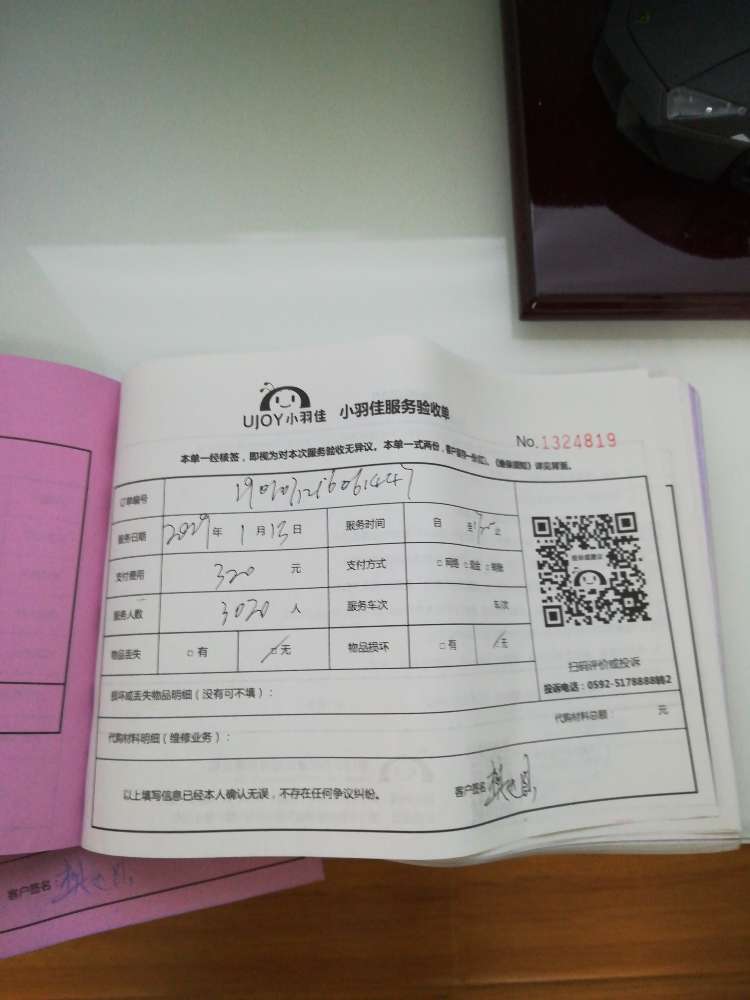 UJOY小羽佳 小羽佳服务验收单
No.1324819
本单一经核签，即视为对本次服务验收无异议。本单一式两份，客户留存一份(红)。《维保须知》详见背面。
订单编号
服务日期 年 1 月 13 日 服务时间 自 至 止
支付费用 320 元 支付方式 □网络 □现金 □转账
服务人数 3020 人 服务车次 车次
物品丢失 □有 □无 物品损坏 □有 □无
扫码评价或投诉
损坏或丢失物品明细（没有可不填）：
代购材料总额： 元
代购材料明细（维修业务）：
以上填写信息已经本人确认无误，不存在任何争议纠纷。 客户签名
客户签名: